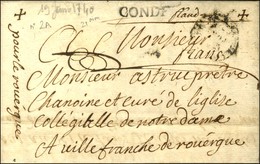 19 janv 1740
N° 2A
CONDE
A Monsieur
franc
Monsieur astruc prêtre
Chanoine et curé de l'église
Collégitelle de notre dame
A ville franche de rouergue
pour le rouergue